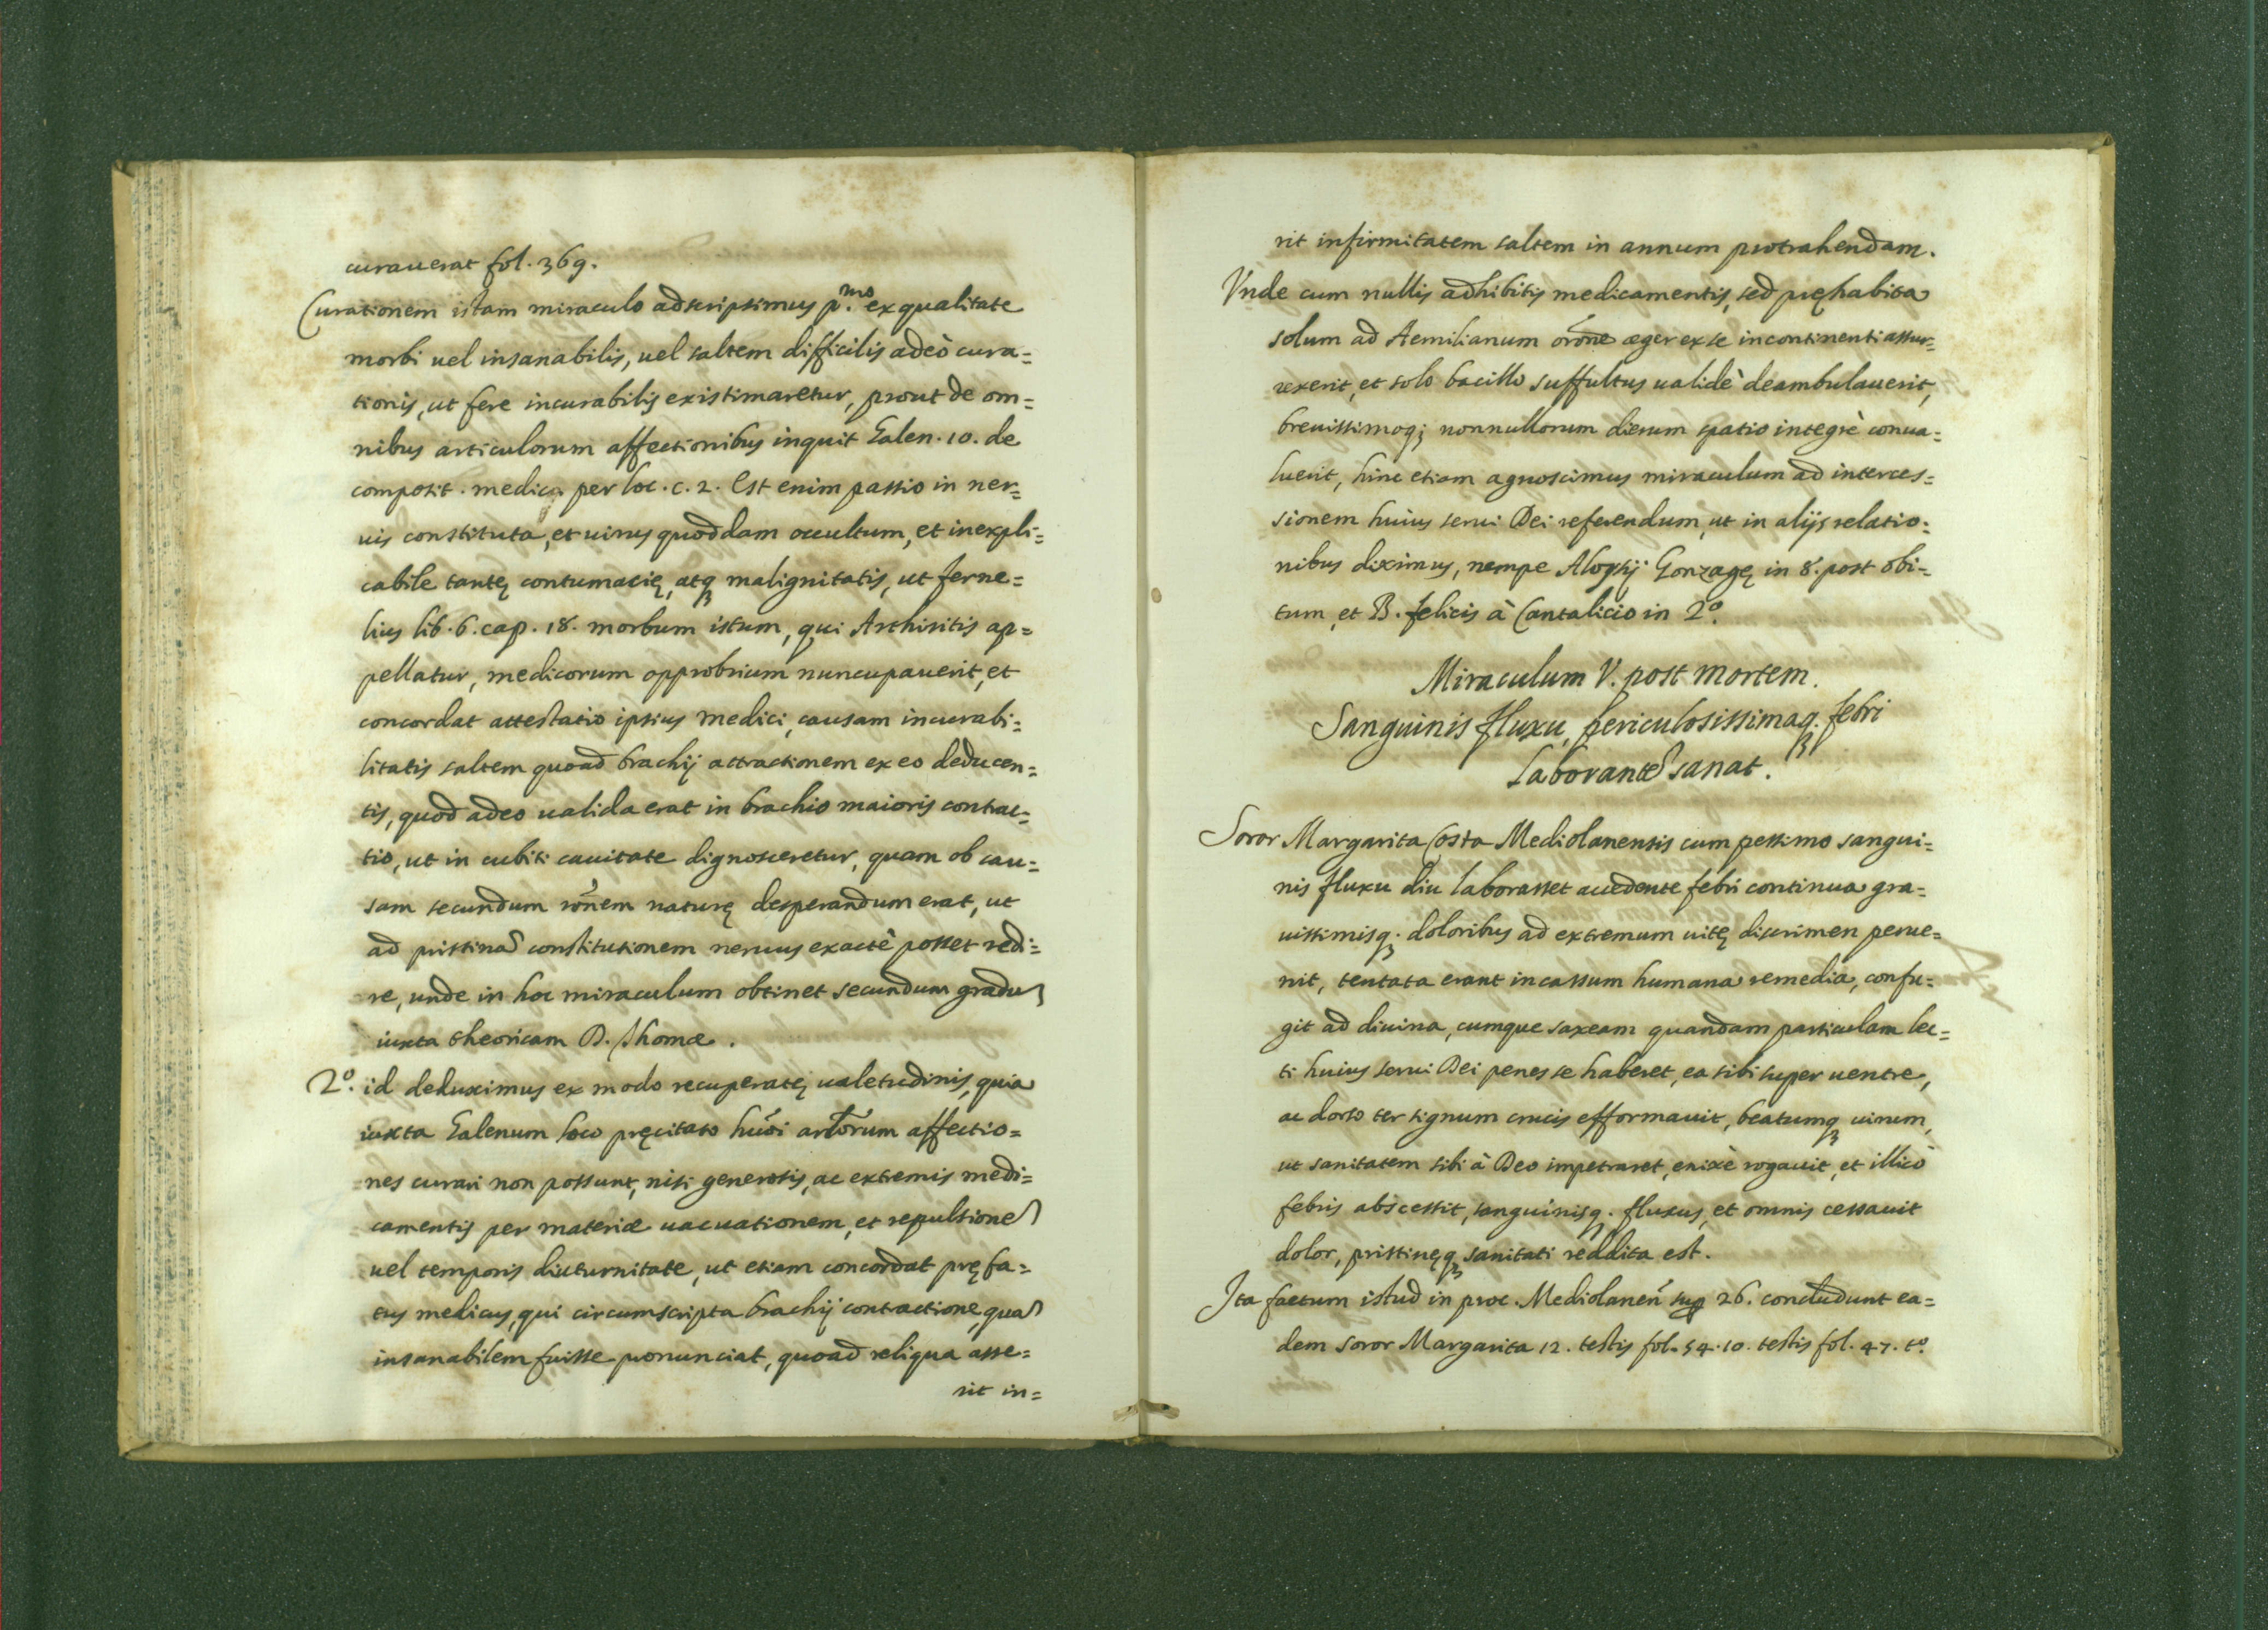 curauerat fol. 369.
Curationem istam miraculo adscripsimus p.mo ex qualitate
morbi uel insanabilis, uel saltem difficilis adeò cura=
tionis, ut fere incurabilis existimaretur, prout de om=
nibus articulorum affectionibus inquit Galen. 10. de
composit. medica per loc. c. 2. Est enim passio in ner=
uis constituta, et uirus quoddam occultum, et inexpli=
cabile tantę contumacię, atq malignitatis, ut ferne=
lius lib. 6. cap. 18. morbum istum, qui Arthiritis ap=
pellatur, medicorum opprobrium nuncupauerit, et
concordat attestatio ipsius medici, causam incurabi=
litatis saltem quoad brachij attractionem ex eo deducen=
tis, quod adeo ualida erat in brachio maioris contrac=
tio, ut in cubiti cauitate dignosceretur, quam ob cau=
sam secundum rōnem naturę desperandum erat, ut
ad pristinā constitutionem neruus exactè posset redi=
re, unde in hoc miraculum obtinet secundum gradū
iuxta theoricam D. Thomæ.
2º. id deduximus ex modo recuperatę ualetudinis, quia
iuxta Galenum loco pręcitato hūoi artōrum affectio=
nes curari non possunt, nisi generosis, ac extremis medi=
camentis per materiæ uacuationem, et repulsionē
uel temporis diuturnitate, ut etiam concordat pręfa=
tus medicus, qui circumscripta brachij contractione, quā
insanabilem fuisse pronunciat, quoad reliqua asse=
rit in=
rit infirmitatem saltem in annum protrahendam.
Vnde cum nullis adhibitis medicamentis, sed pręhabita
solum ad Aemilianum orōne æger ex se incontinenti assur=
rexerit, et solo bacillo suffultus ualidè deambulauerit,
breuissimoq; nonnullorum dierum spatio integrè conua=
luerit, hinc etiam agnoscimus miraculum ad interces=
sionem huius serui Dei referendum, ut in alijs relatio=
nibus diximus, nempe Aloysij Gonzagę in 8. post obi=
tum, et B. felicis à Cantalicio in 2º.
Miraculum V. post mortem.
Sanguinis fluxu, periculosissimaq. febri
Laborantē sanat.
Soror Margarita Costa Mediolanensis cum pessimo sangui=
nis fluxu diu laborasset accedente febri continua gra=
uissimisq. doloribus ad extremum uitę discrimen perue=
nit, tentata erant incassum humana remedia, confu=
git ad diuina, cumque saxeam quandam particulam lec=
ti huius serui Dei penes se haberet, ea sibi super uentre,
ac dorso ter signum crucis efformauit, beatumq uirum,
ut sanitatem sibi à Deo impetraret, enixè rogauit, et illicò
febris abscessit, sanguinisq. fluxus, et omnis cessauit
dolor, pristinęq sanitati reddita est.
Ita factum istud in proc. Mediolanen̄ sup 26. concludunt ea=
dem soror Margarita 12. testis fol. 54. 10. testis fol. 47. tº